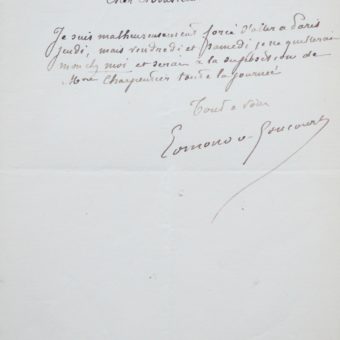 Cher Monsieur
Je suis malheureusement forcé d'aller a Paris
jeudi, mais vendredi et samedi je ne quitterai
mon chez moi et serai à la disposition de
Mme Charpentier toute la journée
Tout a vous
Edmond de Goncourt